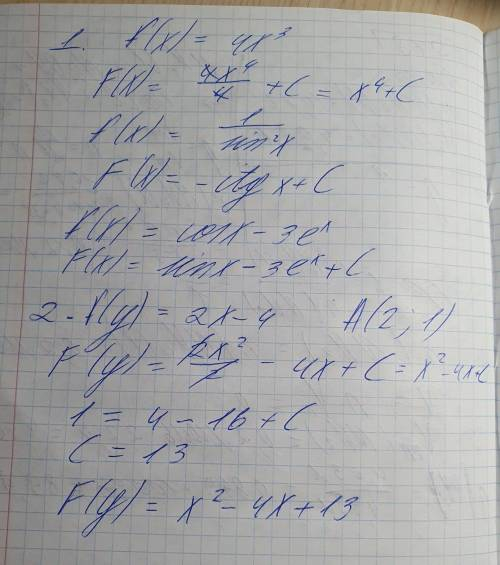 1. f(x) = 4x³
F(x) = 4x⁴/4 + C = x⁴ + C
f(x) = 1/sin²x
F(x) = -ctg x + C
f(x) = cos x - 3eˣ
F(x) = sin x - 3eˣ + C
2. f(y) = 2x - 4 A(2; 1)
F(y) = 2x²/2 - 4x + C = x² - 4x + C
1 = 4 - 16 + C
C = 13
F(y) = x² - 4x + 13